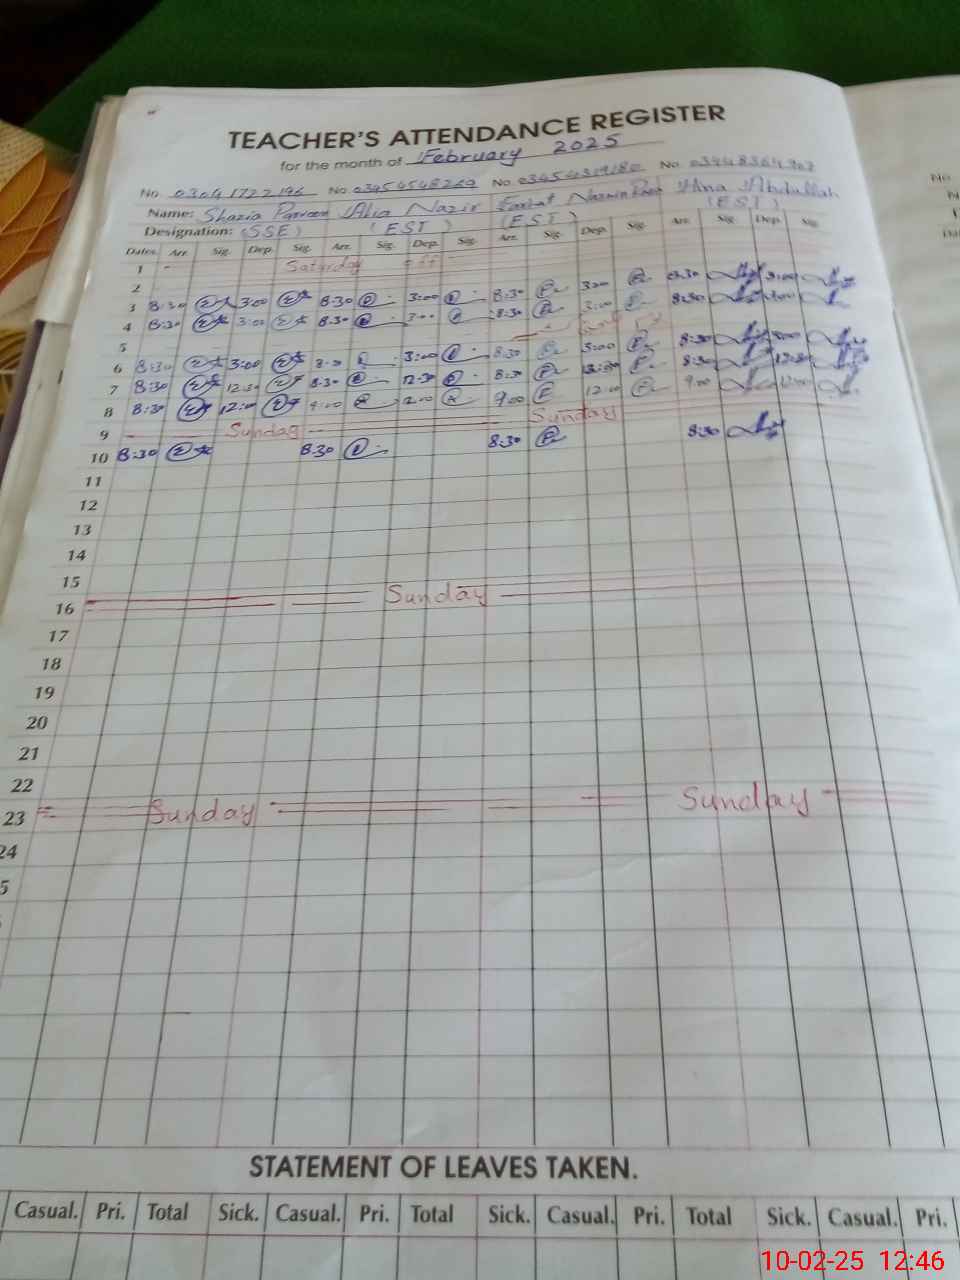 TEACHER'S ATTENDANCE REGISTER
for the month of February 2025
No. 03041722196 No 03454548269 No No.
Name: Shazia Parveen Alia Nazir Farhat Nasmin Hina Abdullah
Designation: (SSE) (EST) (EST) (EST)
Dates Arr. Sig. Dep. Sig. Arr. Sig. Dep. Sig. Arr. Sig. Dep. Sig. Arr. Sig. Dep. Sig.
1 Saturday off
2
3 8:30 3:00 8:30 3:00 8:30 3:00 8:30 3:00
4 8:30 3:00 8:30 3:00 8:30 3:00 8:30 3:00
5
6 8:30 3:00 8:30 3:00 8:30 3:00 8:30 3:00
7 8:30 12:30 8:30 12:30 8:30 12:30 8:30 12:30
8 8:30 12:00 9:00 12:00 9:00 12:00 9:00 12:00
9 Sunday Sunday
10 8:30 8:30 8:30 8:30
11
12
13
14
15
16 Sunday
17
18
19
20
21
22
23 Sunday Sunday
24
5
STATEMENT OF LEAVES TAKEN.
Casual. Pri. Total Sick. Casual. Pri. Total Sick. Casual. Pri. Total Sick. Casual. Pri.
10-02-25 12:46